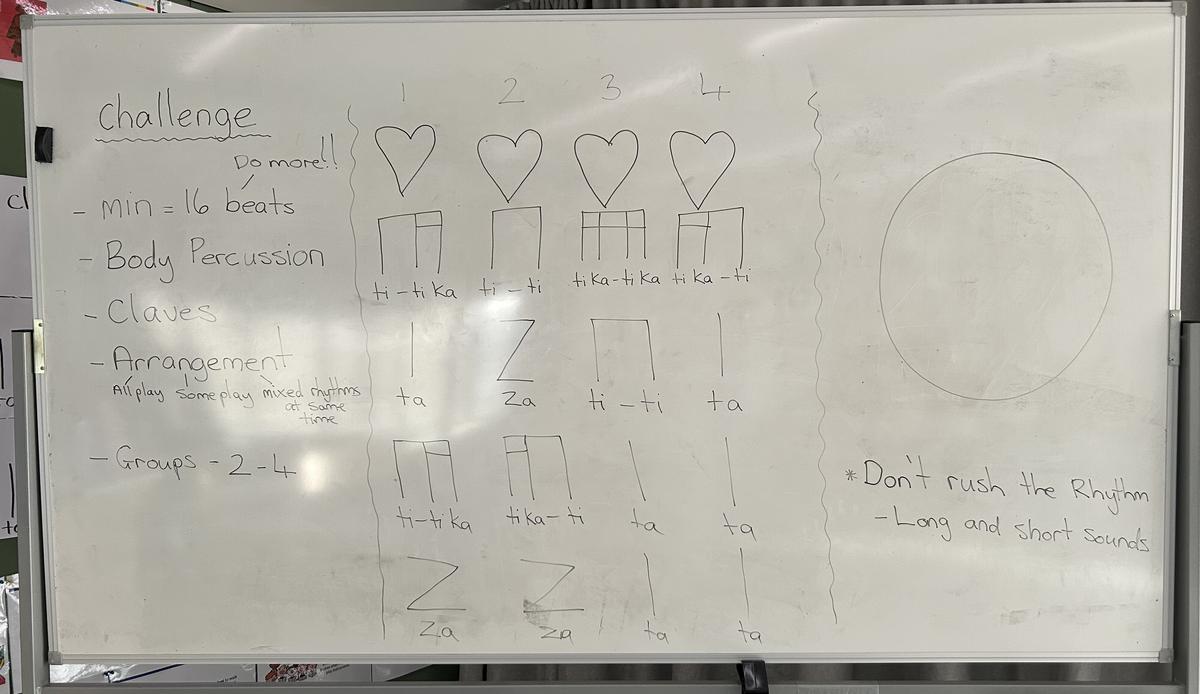 Challenge
Do more!!
- Min = 16 beats
- Body Percussion
- Claves
- Arrangement
All play some play mixed rhythms
at same
time
- Groups - 2-4
1 2 3 4
ti-tika ti-ti tika-tika tika-ti
ta za ti-ti ta
ti-tika tika-ti ta ta
Z Z
za za ta ta
*Don't rush the Rhythm
-Long and short sounds